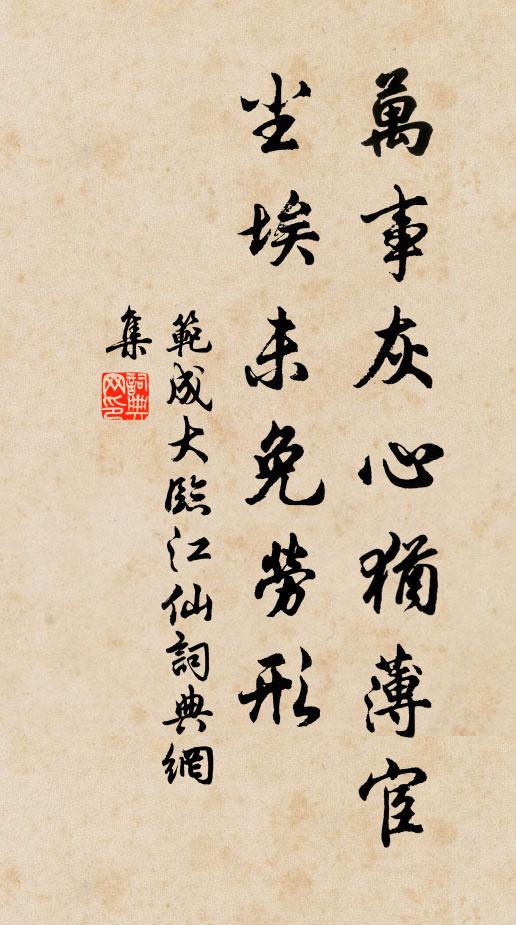 萬事灰心猶薄宦
尘埃未免勞形
範成大臨江仙詞典網
集
詞典網印